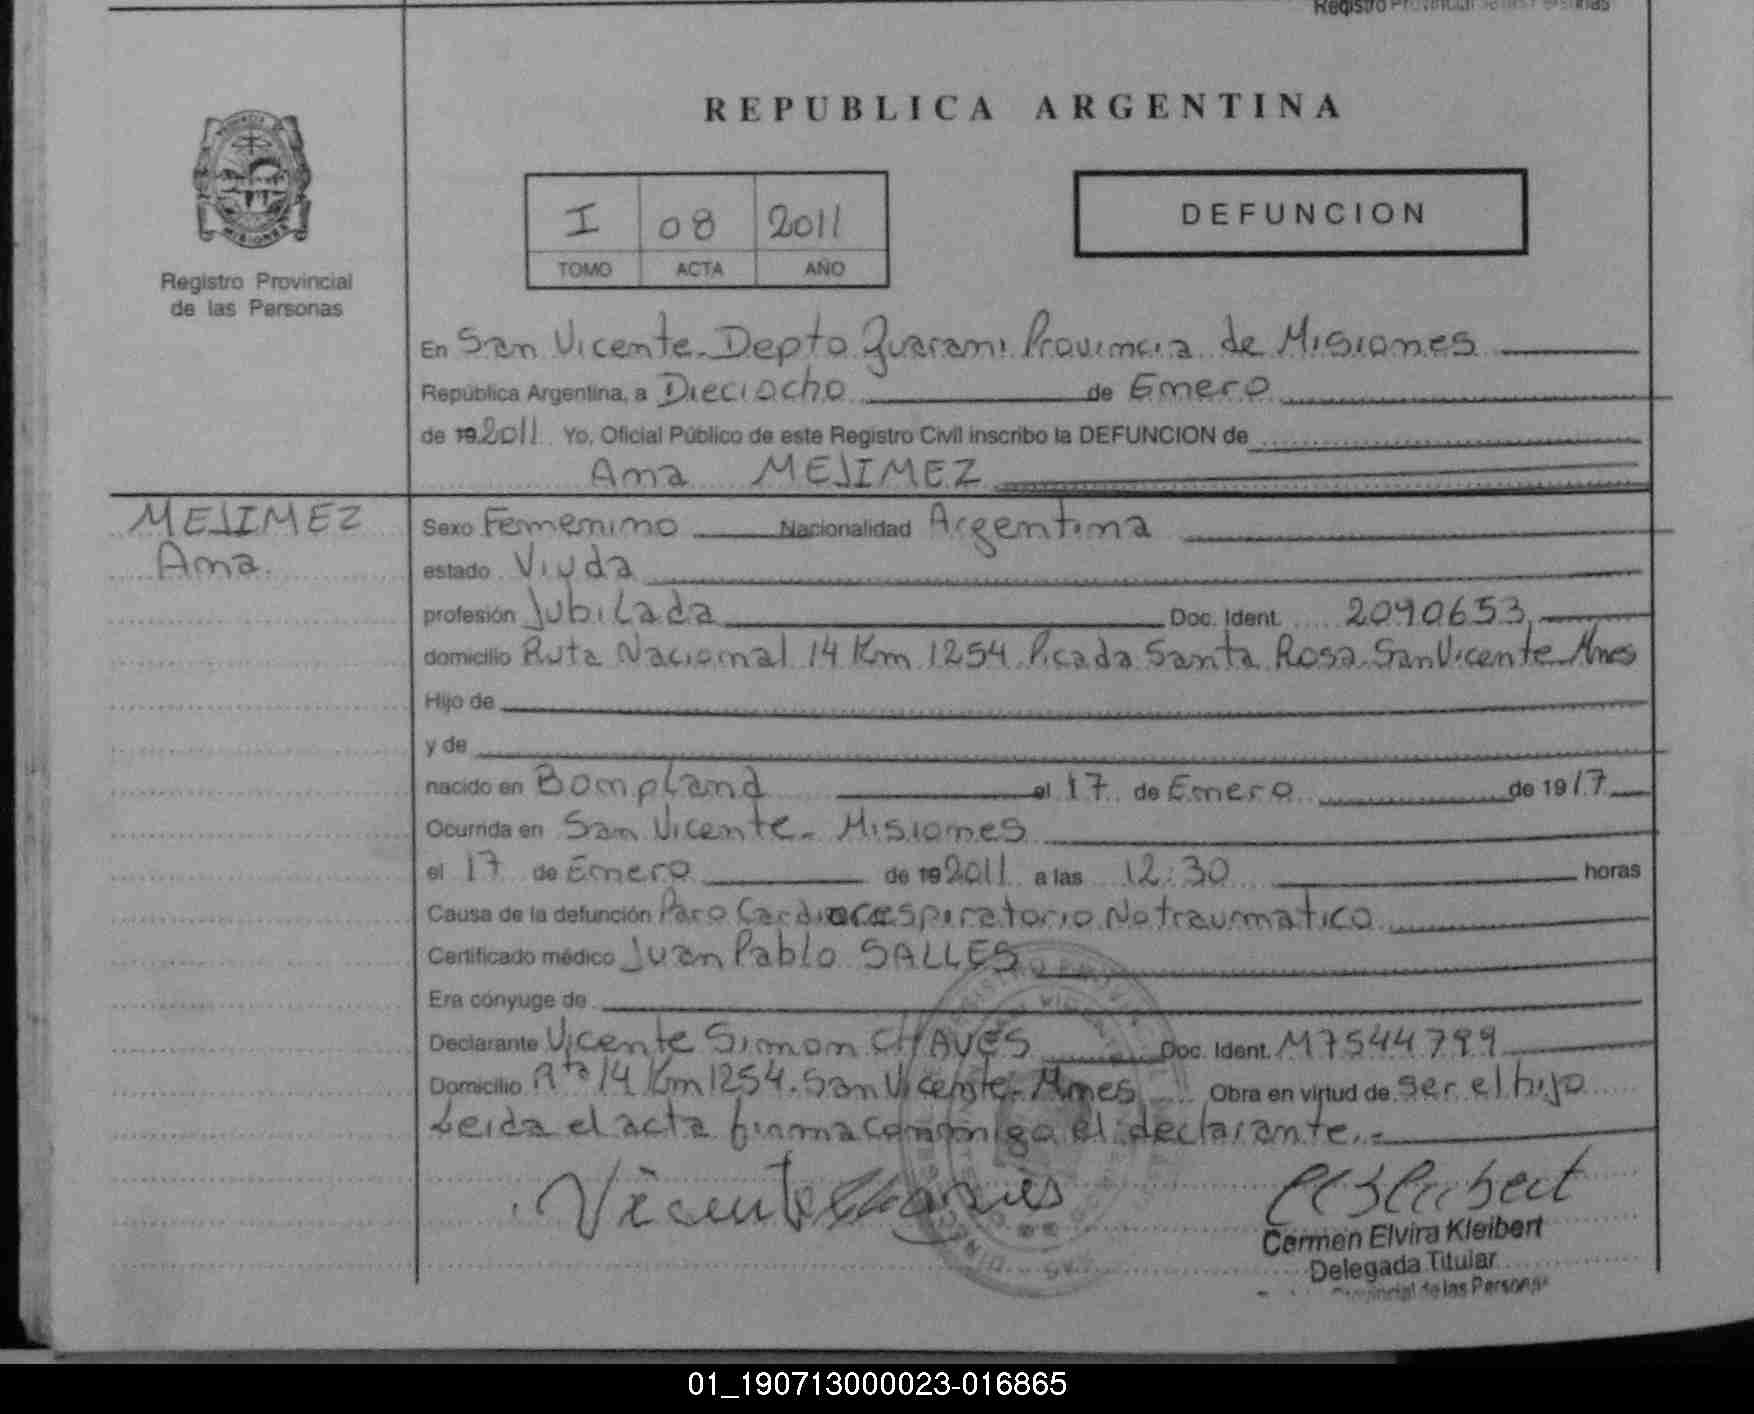 Registro Provincial de las Personas
REPUBLICA ARGENTINA
I 08 2011
TOMO ACTA AÑO
DEFUNCION
Registro Provincial
de las Personas
En San Vicente Depto Guarani Provincia de Misiones
República Argentina, a Dieciocho de Enero
de 19 2011 Yo, Oficial Público de este Registro Civil inscribo la DEFUNCION de
Ana MEJIMEZ
MEJIMEZ
Ana
Sexo Femenino Nacionalidad Argentina
estado Viuda
profesión Jubilada Doc. Ident. 2090653
domicilio Ruta Nacional 14 Km 1254 Picada Santa Rosa San Vicente Mnes
Hijo de
y de
nacido en Bompland el 17 de Enero de 1917
Ocurrida en San Vicente - Misiones
el 17 de Enero de 19 2011 a las 12:30 horas
Causa de la defunción Paro Cardiorrespiratorio No traumatico
Certificado médico Juan Pablo SALLES
Era cónyuge de
Declarante Vicente Simon CHAVES Doc. Ident. M7544799
Domicilio Rta 14 Km 1254. San Vicente - Mnes Obra en virtud de ser el hijo
Leida el acta firma conmigo el declarante.-
Vicente Chaves
Carmen Elvira Kleibert
Delegada Titular
Provincial de las Personas
01_190713000023-016865